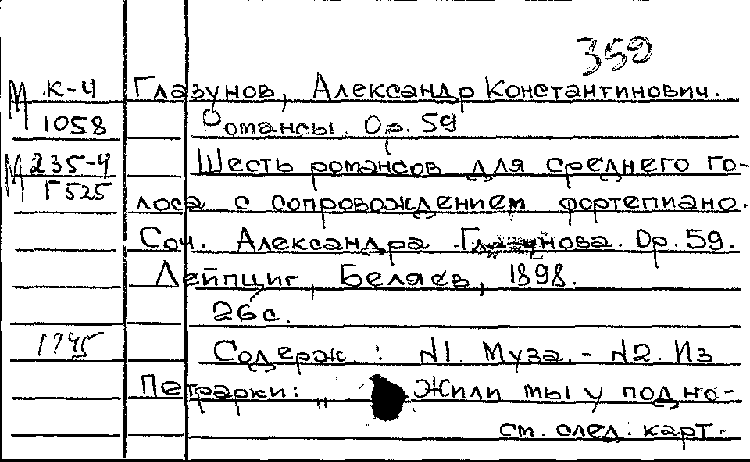 359
М К-4 Глазунов, Александр Константинович.
1058 Романсы. Op. 59
М 235-4 Шесть романсов для среднего го-
Г525 лоса с сопровождением фортепиано.
Соч. Александра Глазунова. Op. 59.
Лейпциг, Беляев, 1898.
26с.
1795 Содерж.: №1. Муза. - №2. Из
Петрарки: „ Жили мы у подно-
см. след. карт.